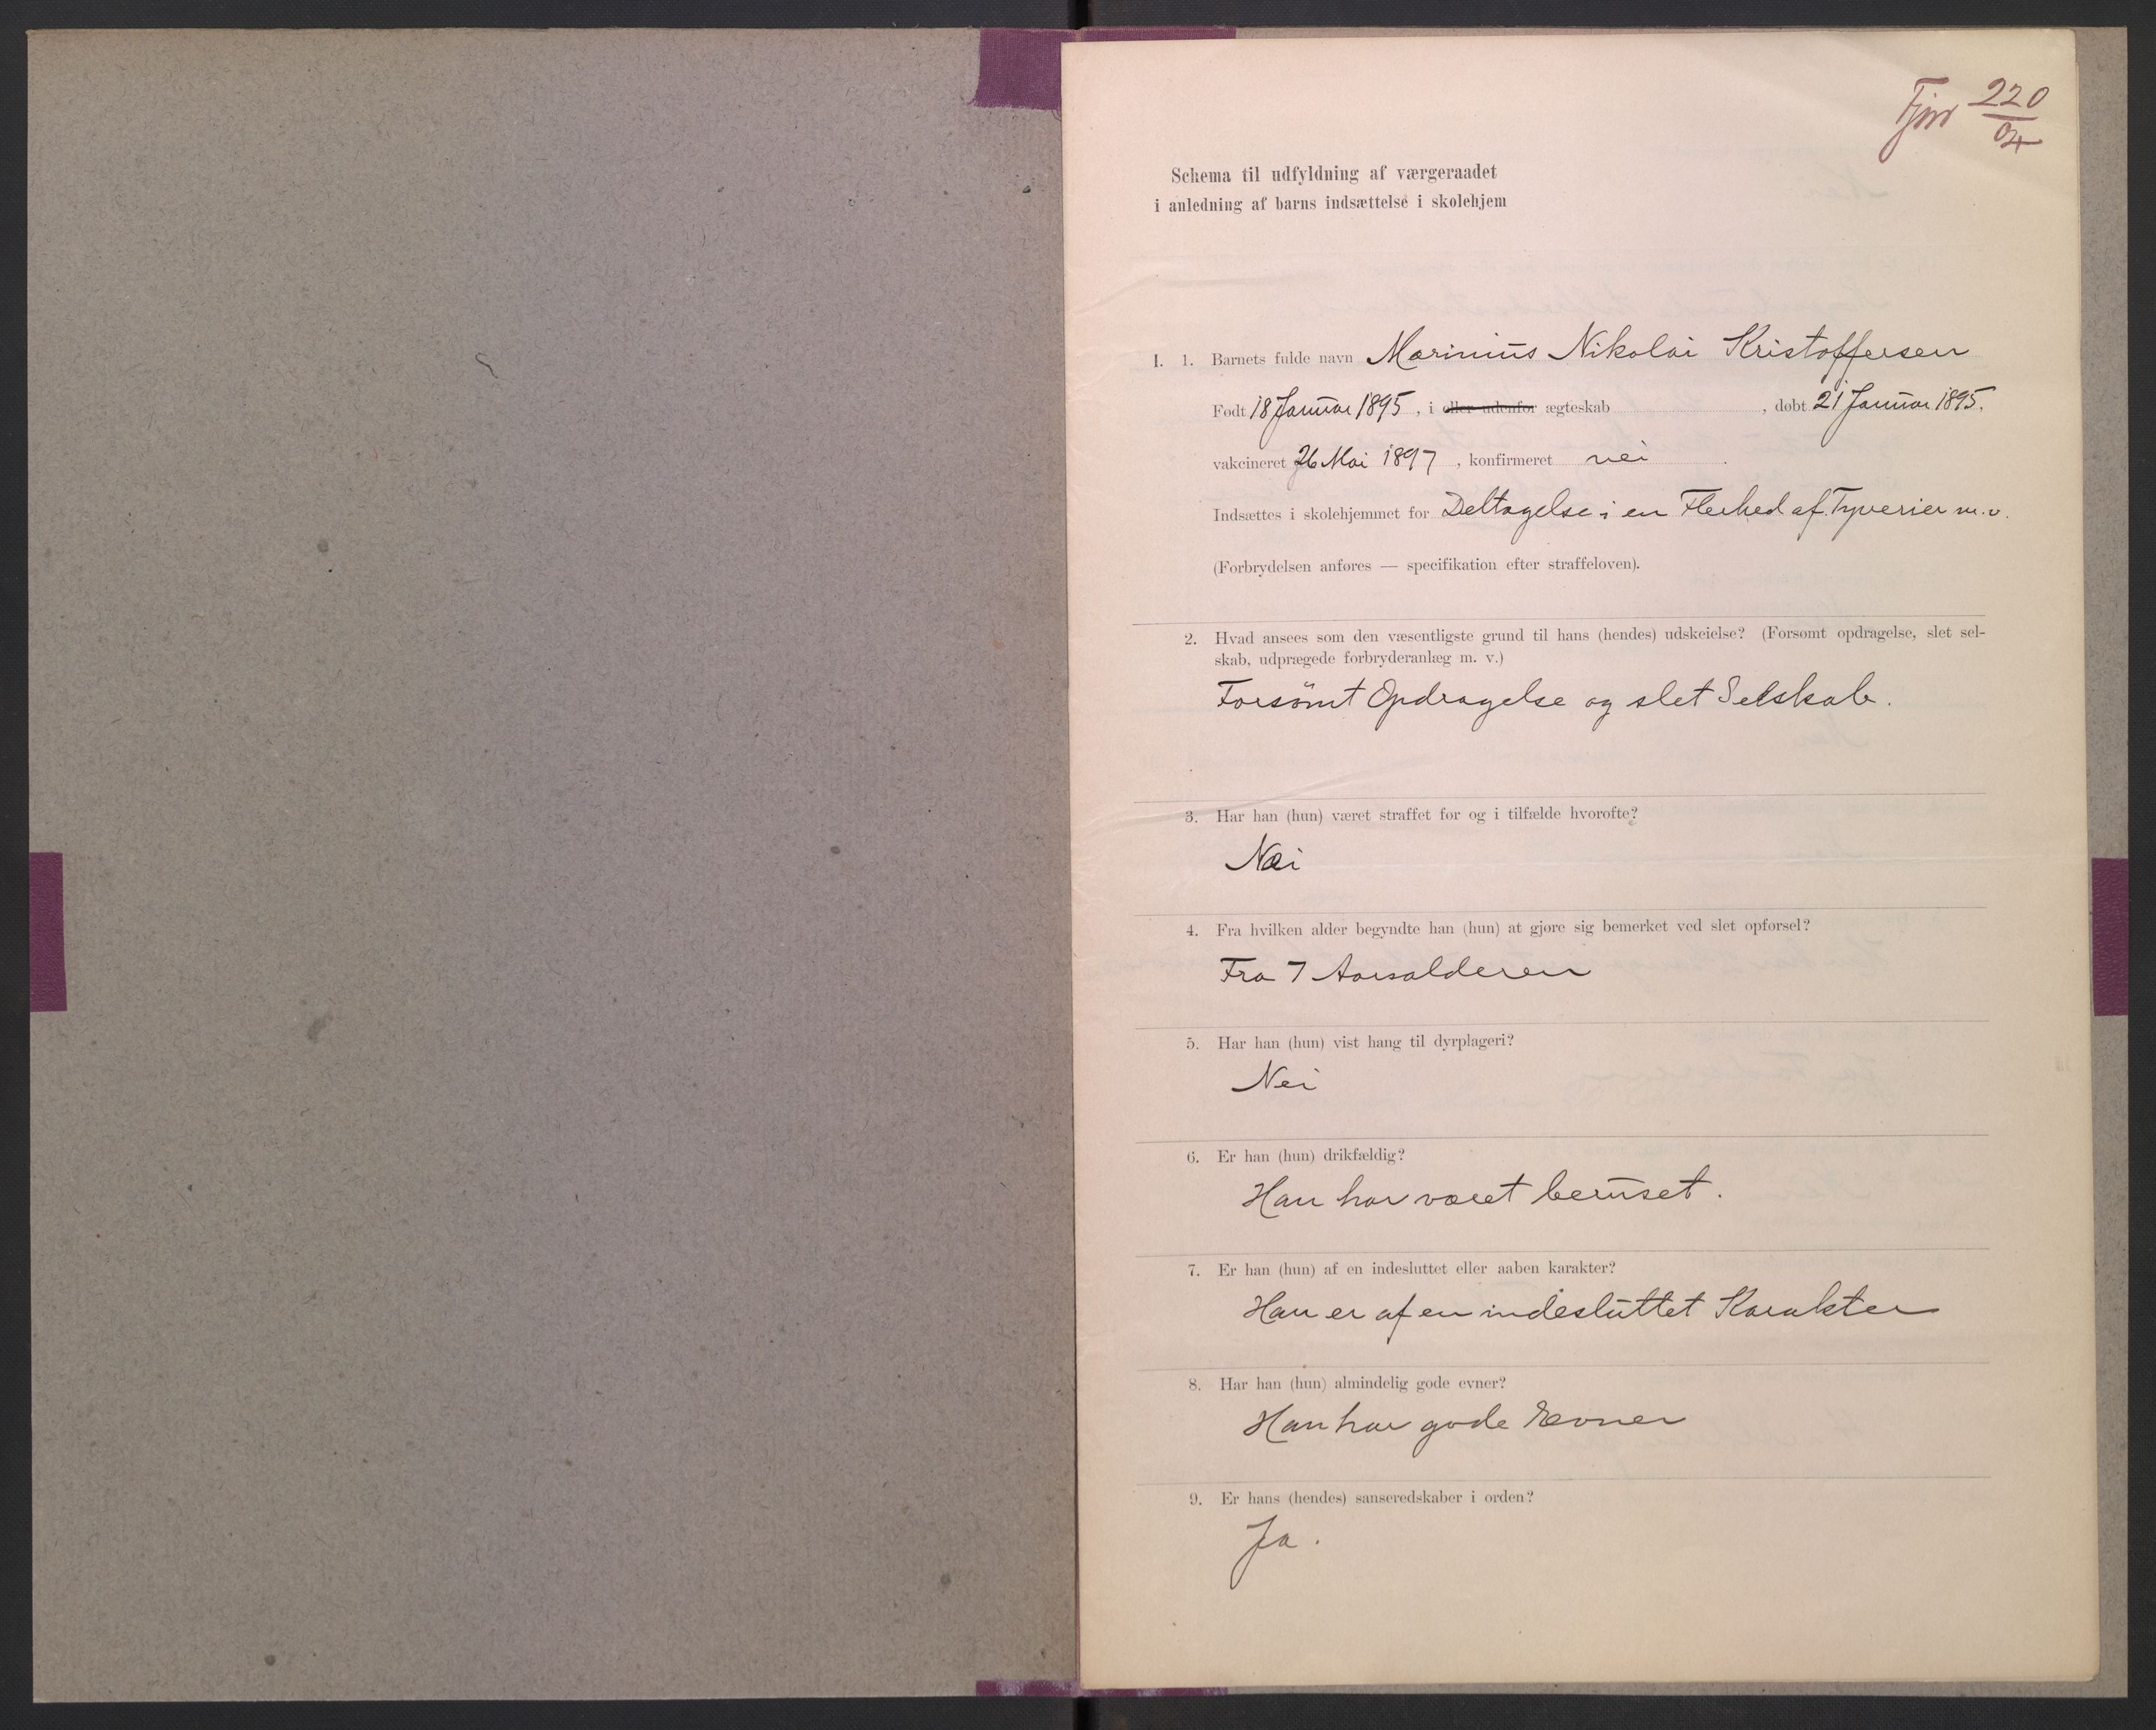 220
04
Schema til udfyldning af værgeraadet
i anledning af barns indsættelse i skolehjem
I. 1. Barnets fulde navn Marinius Nikolai Kristoffersen
Født 18 Januar 1895, i eller udenfor ægteskab , døbt 21 Januar 1895.
vakcineret 26 Mai 1897, konfirmeret nei .
Indsættes i skolehjemmet for Deltagelse i en Flerhed af Tyverier m.v.
(Forbrydelsen anføres — specifikation efter straffeloven).
2. Hvad ansees som den væsentligste grund til hans (hendes) udskeielse? (Forsømt opdragelse, slet sel-
skab, udprægede forbryderanlæg m. v.)
Forsömt Opdragelse og slet Selskab.
3. Har han (hun) været straffet før og i tilfælde hvorofte?
Nei
4. Fra hvilken alder begyndte han (hun) at gjøre sig bemerket ved slet opførsel?
Fra 7 Aarsalderen
5. Har han (hun) vist hang til dyrplageri?
Nei
6. Er han (hun) drikfældig?
Han har været beruset.
7. Er han (hun) af en indesluttet eller aaben karakter?
Han er af en indesluttet Karakter
8. Har han (hun) almindelig gode evner?
Han har gode Evner
9. Er hans (hendes) sanseredskaber i orden?
Ja.